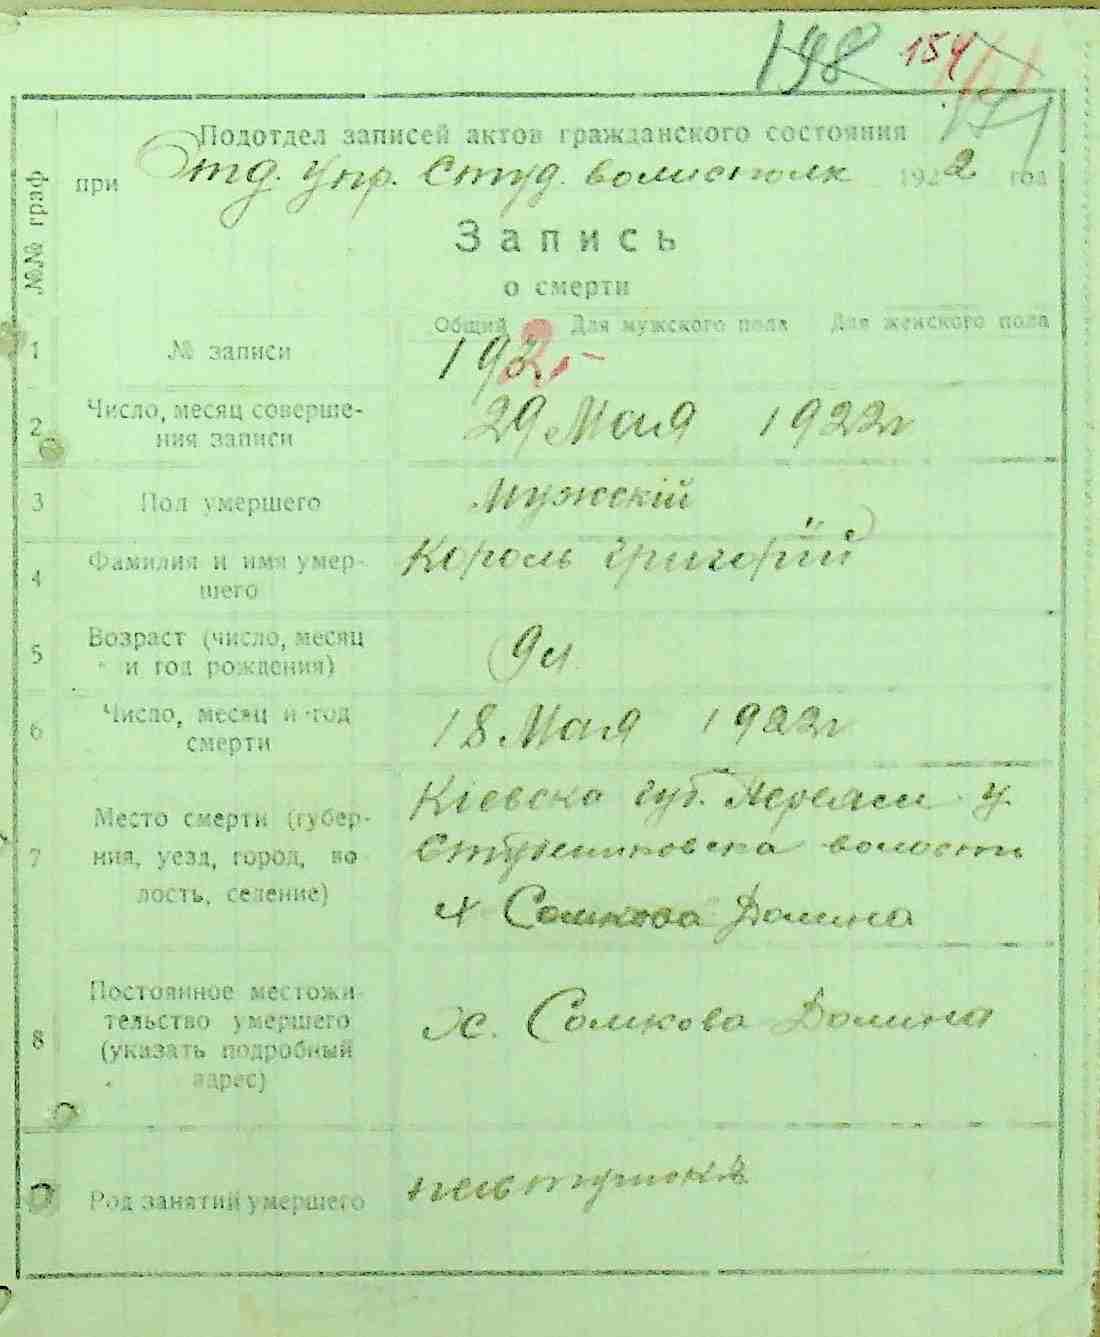 198 154
Подотдел записей актов гражданского состояния
при Отд. Упр. Студ. волисполк 1922 год
№№ граф
Запись
о смерти
Общий Для мужского пола Для женского пола
1 № записи 192
2 Число, месяц соверше- 29 Мая 1922г
ния записи
3 Пол умершего Мужскій
4 Фамилия и имя умер- Король Григорій
шего
5 Возраст (число, месяц 9л
и год рождения)
6 Число, месяц и год 18 Мая 1922г
смерти
Кіевска губ. Переясл у.
7 Место смерти (губер-
ния, уезд, город, во- волости
лость, селение) х Сомкова Долина
8 Постоянное местожи-
тельство умершего х. Сомкова Долина
(указать подробный
адрес)
Род занятий умершего